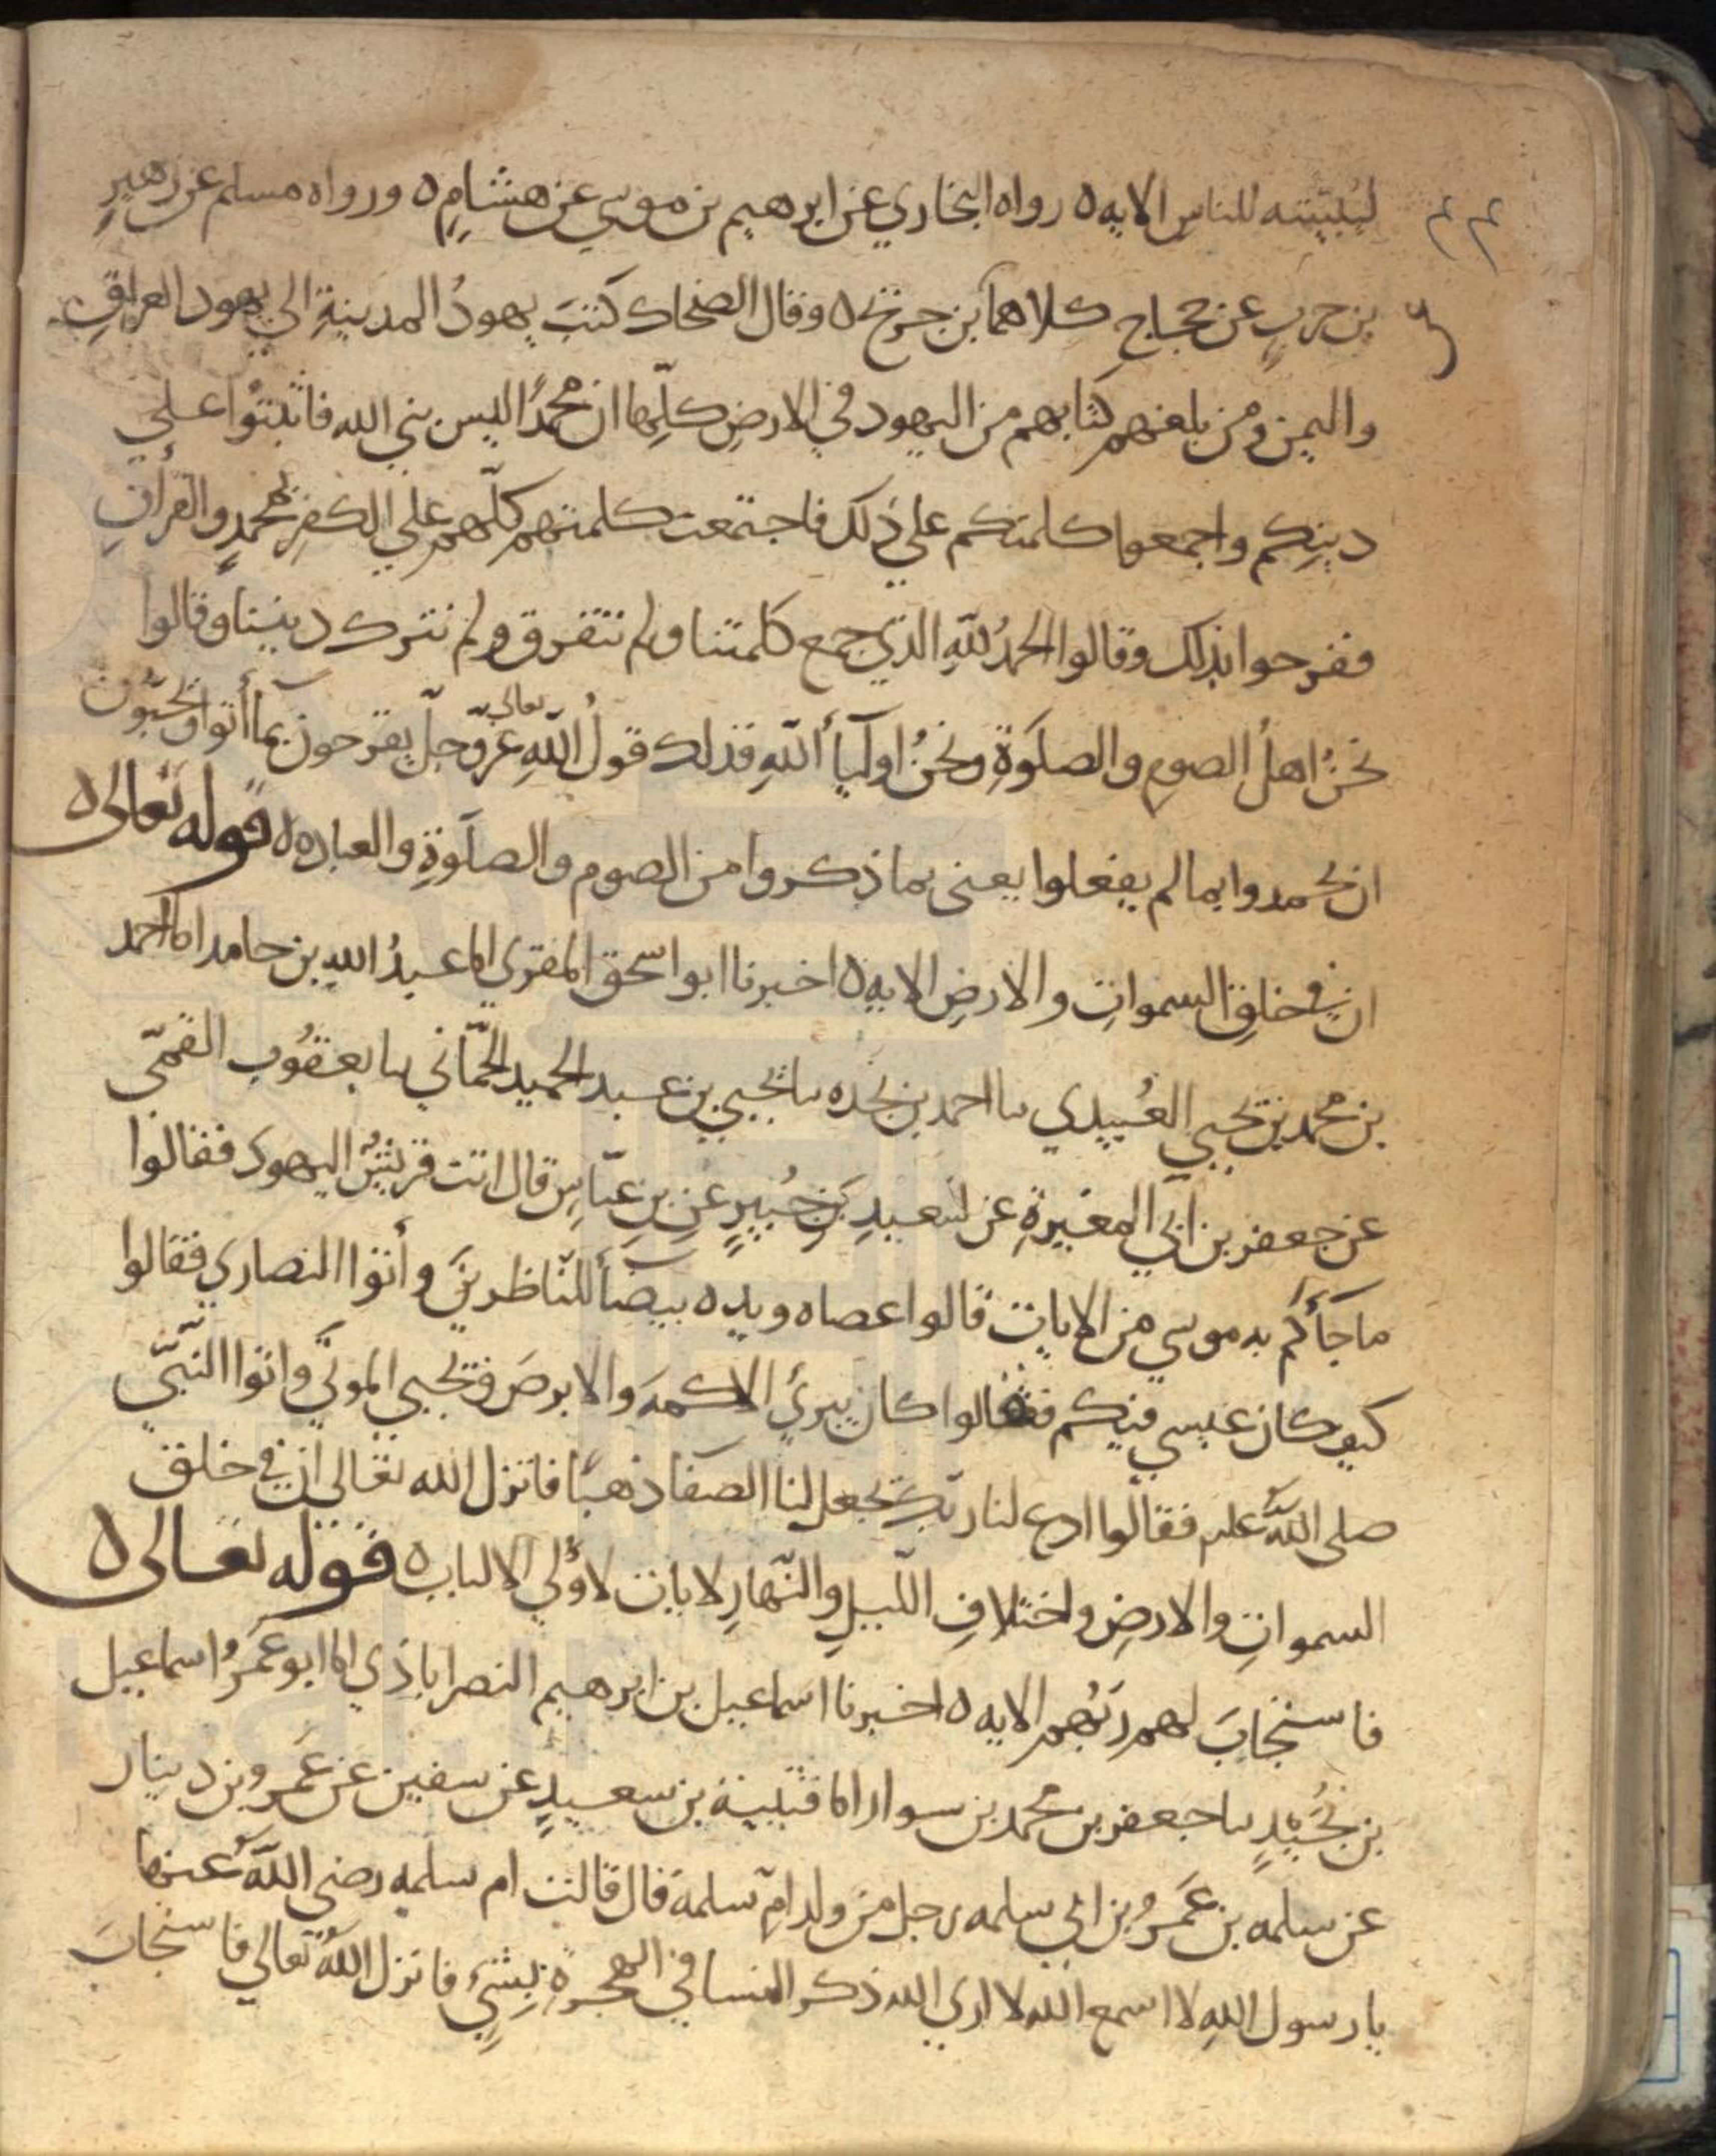 ليبيننه للناس الايه ه رواه البخاري عن ابرهيم بن موسي عن هشام ه ورواه مسلم عن زهير
بن حرب عن حجاج كلاهما بن جريج ه وقال الضحاك كتب يهود المدينة الي يهود العراق
واليمن ومن بلغهم كتابهم من اليهود في الارض كلها ان محمدا ليس نبي الله فاثبتوا علي
دينكم واجمعوا كلمتكم علي ذلك فاجتمعت كلمتهم كلهم علي الكفر بمحمد والقرأن
ففرحوا بذلك وقالوا الحمد لله الذي جمع كلمتنا ولم نتفرق ولم نترك ديننا وقالوا
نحن اهل الصوم والصلوة ونحن اوليأ الله فذلك قول الله تعالي عز وجل يفرحون بما أتوا ويحبون
ان يحمدوا بما لم يفعلوا يعني بما ذكروا من الصوم والصلوة والعباده ه قوله تعالى ه
ان في خلق السموات والارض الايه ه اخبرنا ابو اسحق المقري انا عبد الله بن حامد انا احمد
بن محمد بن يحيي العبيدي نا احمد بن نجده نا يحيي بن عبد الحميد الحماني نا يعقوب القمي
عن جعفر بن ابي المغيرة عن سعيد بن جبير عن بن عباس قال اتت قريش اليهود فقالوا
ما جأكم به موسي من الايات قالوا عصاه ويده بيضأ للناظرين وأتوا النصاري فقالوا
كيف كان عيسي فيكم فقالوا كان يبرئ الاكمه والابرص ويحيي الموتي واتوا النبي
صلى الله عليه فقالوا ادع لنا ربك يجعل لنا الصفا ذهبا فانزل الله تعالي ان في خلق
السموات والارض واختلاف الليل والنهار لايات لاولي الالباب ه قوله تعالى ه
فاستجاب لهم ربهم الايه ه اخبرنا اسماعيل بن ابرهيم النصراباذي انا ابو عمرو اسماعيل
بن نجيد نا جعفر بن محمد بن سوار انا قتيبة بن سعيد عن سفين عن عمرو بن دينار
عن سلمه بن عمرو بن ابي سلمه رجل من ولد ام سلمة قال قالت ام سلمه رضي الله عنها
يا رسول الله لا اسمع الله لا اري الله ذكر النسا في الهجرة بشئ فانزل الله تعالي فاستجاب